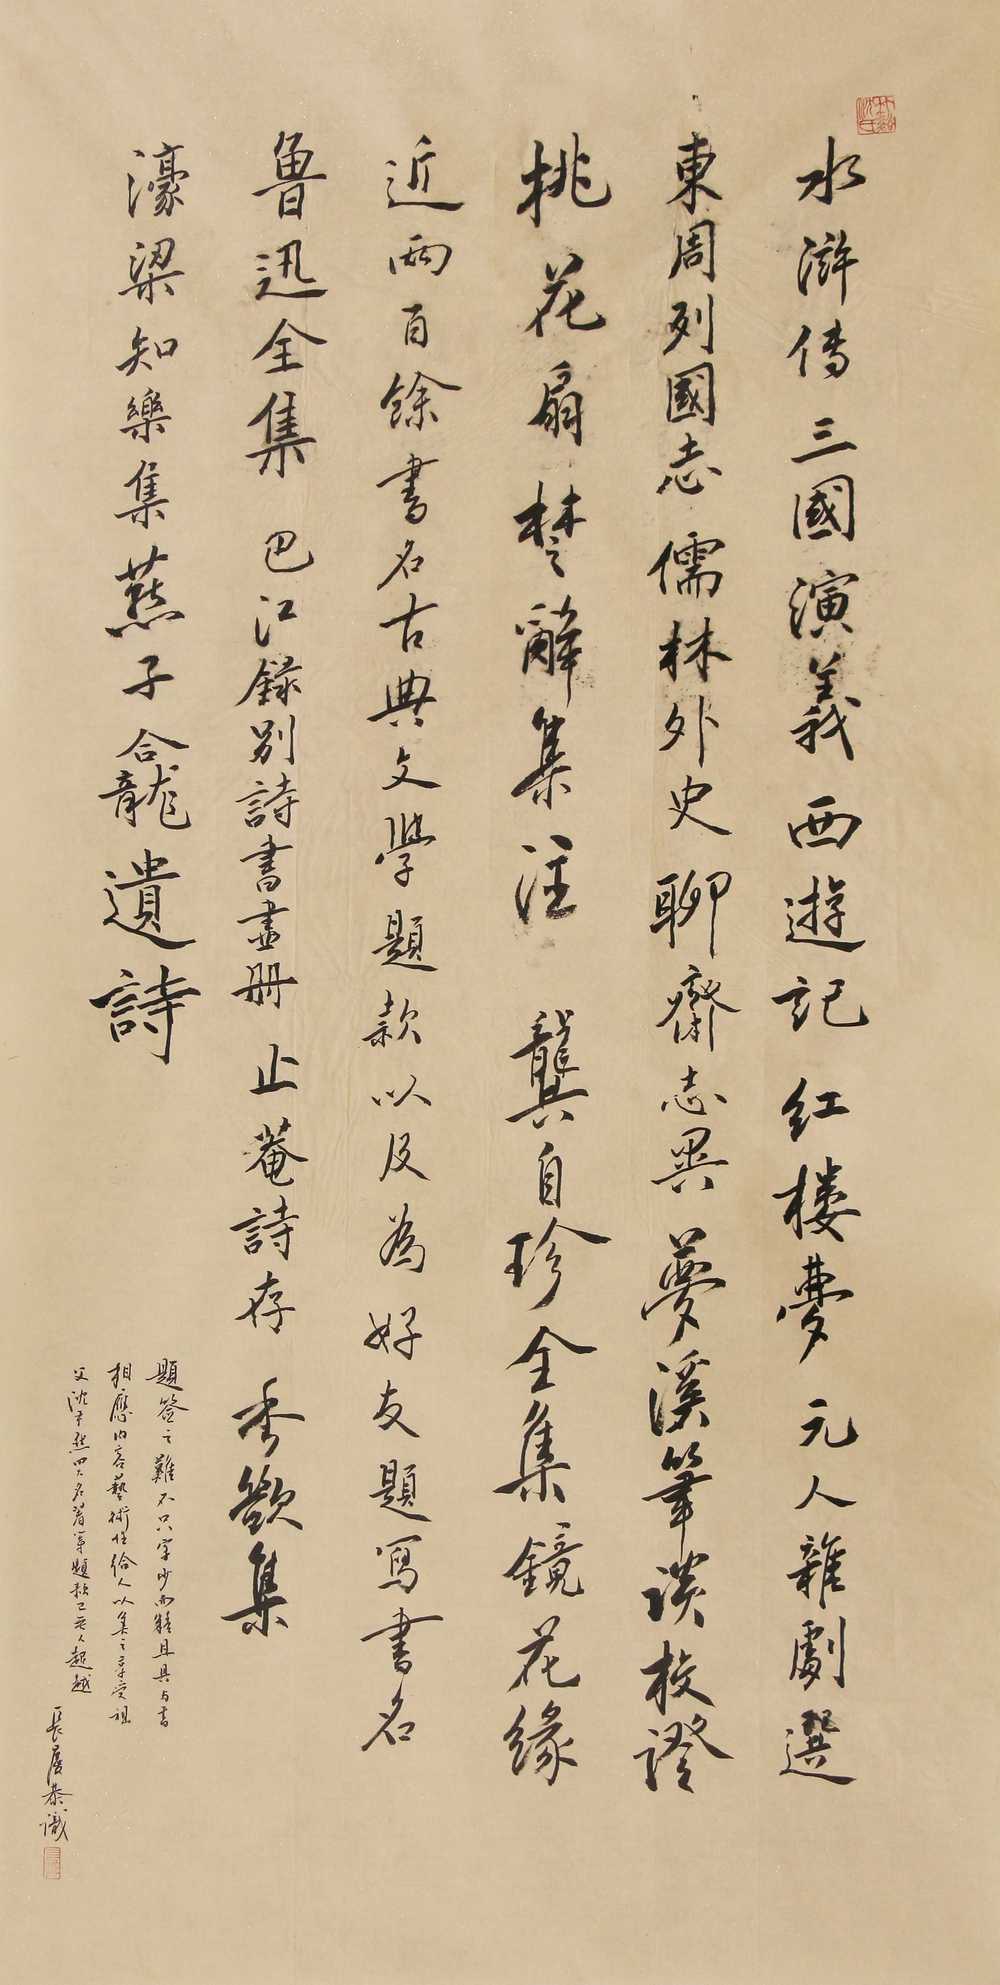 水滸傳三國演義西遊記红楼夢元人雜劇選
東周列國志儒林外史聊齋志異夢溪筆談校證
桃花扇楚辭集注龔自珍全集鏡花緣
近两百餘書名古典文學題款以及為好友題寫書名
魯迅全集巴江錄別詩書畫册止菴詩存秀歙集
濠梁知樂集燕子龕遺詩
題签之難不只字少而難且具与書
相應内容藝術性给人以集之享受祖
父沈尹默四大名著等題款已无人超越
長房恭識